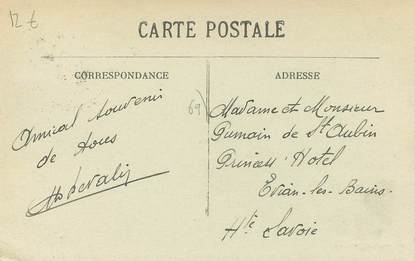 12 €
CARTE POSTALE
CORRESPONDANCE
ADRESSE
Amical souvenir
de
69)
Madame et Monsieur
de St Aubin
Princess' Hotel
Evian-les-Bains
Hte Savoie